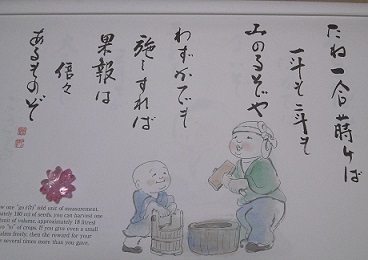 たね一合蒔けば
一斗も二斗も
みのるぞや
わずかでも
施しすれば
果報は
倍々
あるものぞ
one "go (合)" unit of measurement,
180 cc) of seeds, you can harvest one
amount of volume, approximately 18 litres)
"to" of crops. If you give even a small
freely, then the reward for your
several times more than you gave.